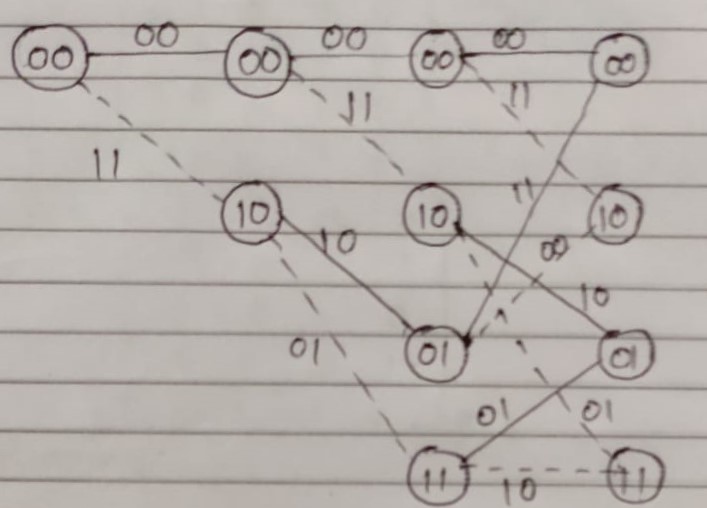 00 00 00
00 00 00 00
11 11 11
11
10 10 10
10 00
10
01 01 01
01 01
11 10 11